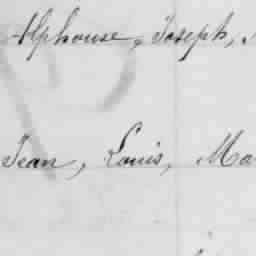 Alphonse, Joseph,
Jean, Louis, Ma